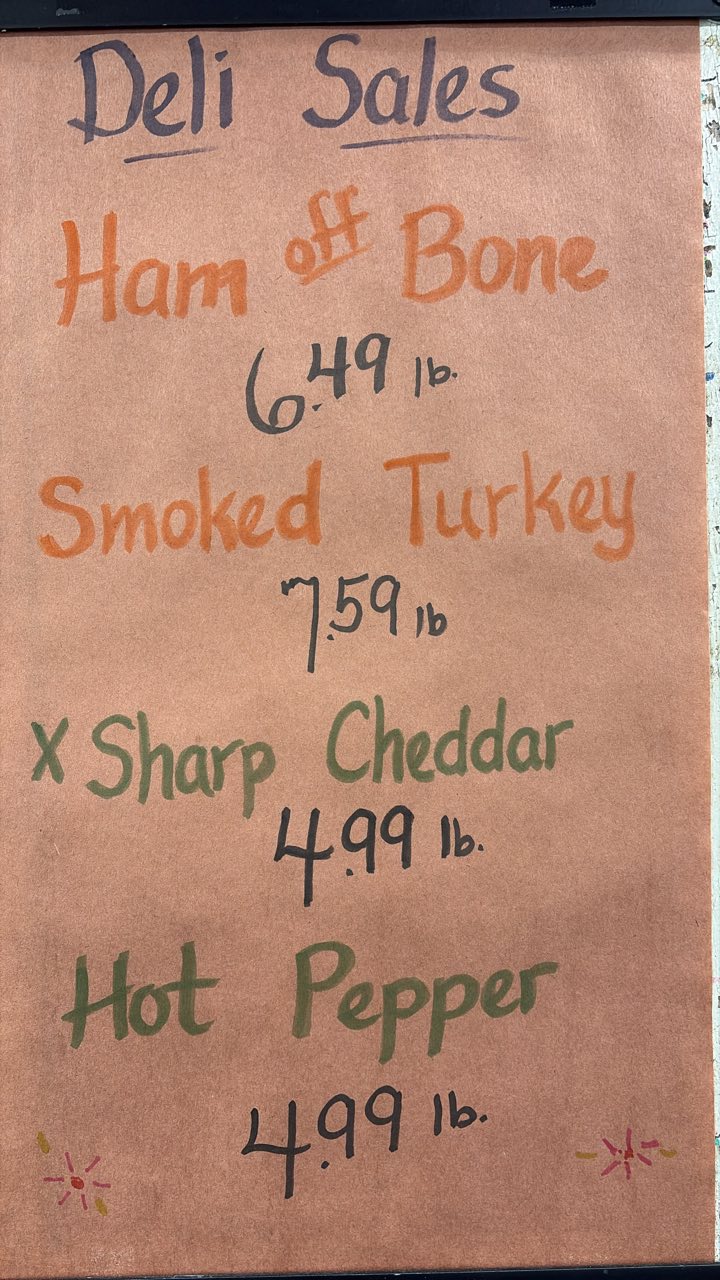 Deli Sales
Ham off Bone
6.49 lb.
Smoked Turkey
7.59 lb
X Sharp Cheddar
4.99 lb.
Hot Pepper
4.99 lb.